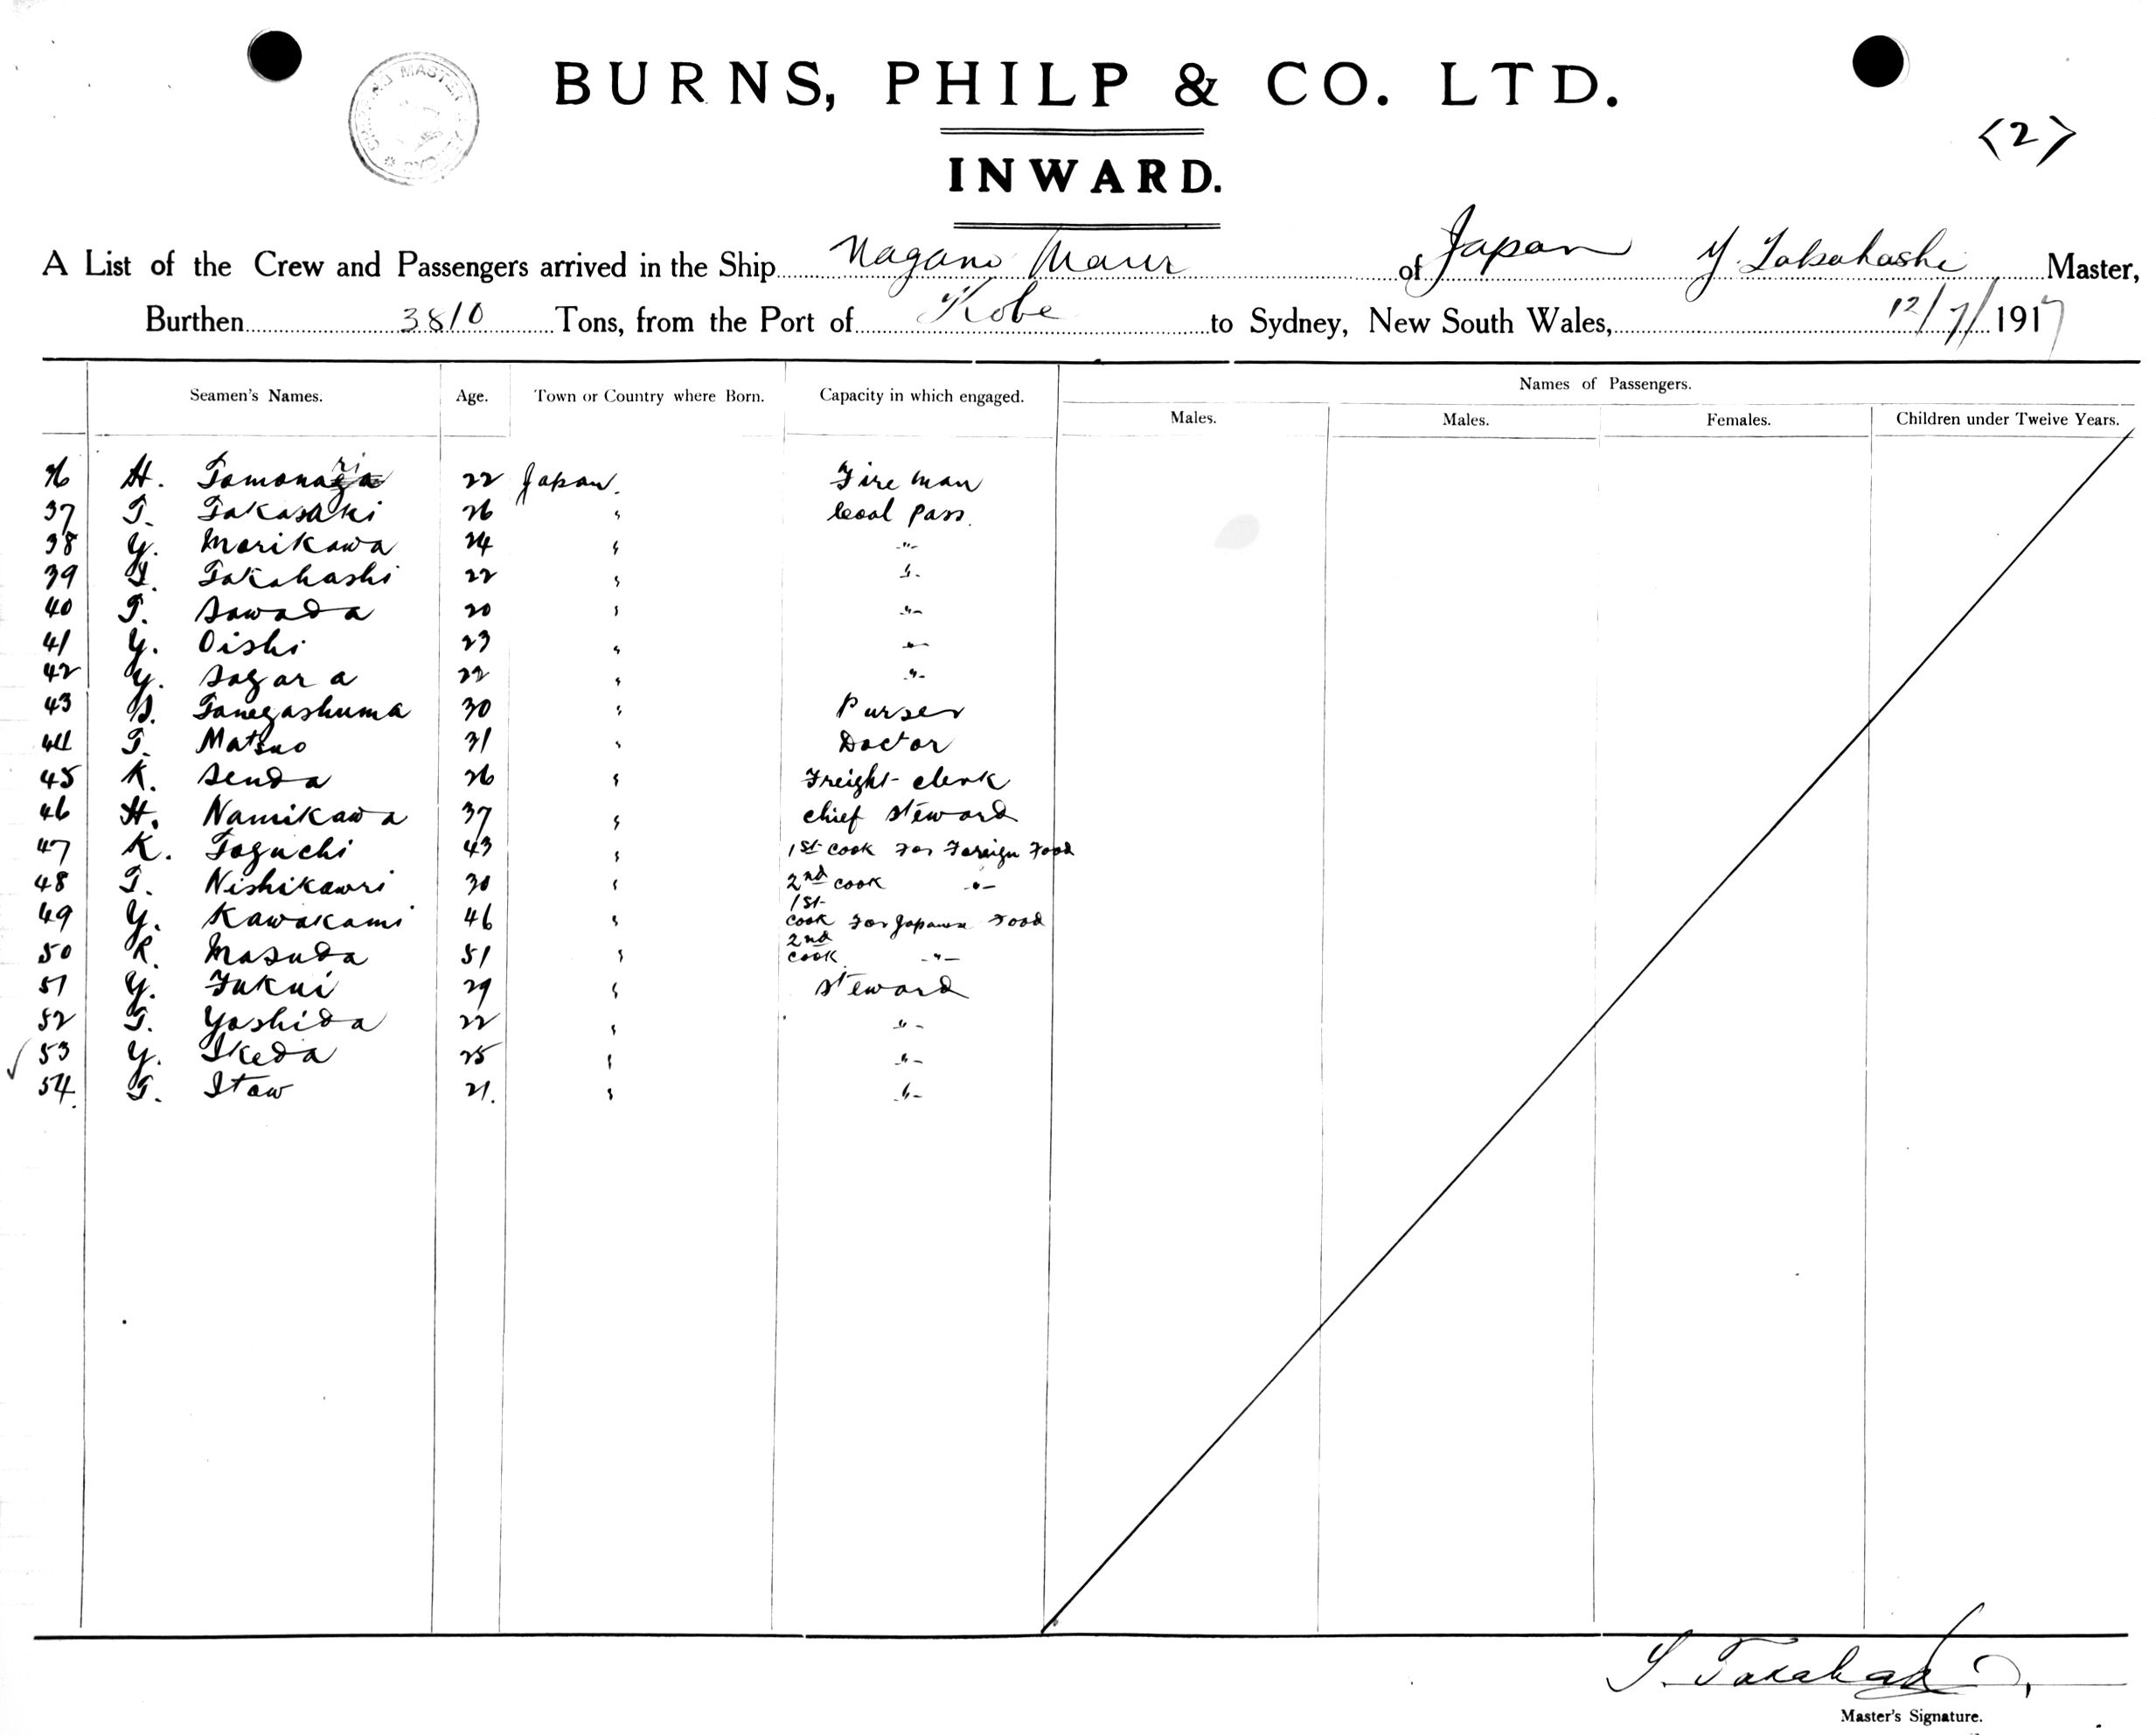 BURNS, PHILP & CO. LTD.
<2>
INWARD.
A List of the Crew and Passengers arrived in the Ship Nagano Maru of Japan Y. Takahashi Master,
Burthen 3810 Tons, from the Port of Kobe to Sydney, New South Wales, 12/7/1917
Names of Passengers.
Seamen's Names. Age. Town or Country where Born. Capacity in which engaged.
Males. Males. Females. Children under Twelve Years.
36 H. Tomonari 22 Japan. Fire man
37 T. Takasaki 26 " Coal pass.
38 Y. Morikawa 24 " -"-
39 T. Takahashi 22 " "-
40 T. Sawada 20 " -"-
41 Y. Oishi 23 " -"-
42 Y. Sagara 22 " -"-
43 S. Tanegashuma 30 " Purser
44 T. Matsuo 31 " Doctor
45 K. Senda 26 " Freight-clerk
46 H. Namikawa 37 " chief steward
47 K. Toguchi 43 " 1st cook For Foreign Food
48 T. Nishikawri 30 " 2nd cook -"-
49 Y. Kawakami 46 " 1st cook For Japanese Food
50 K. Masuda 51 " 2nd cook -"-
51 Y. Fukui 29 " steward
52 T. Yoshida 22 " -"-
53 Y. Ikeda 25 " -"-
54. T. Itow 21. " -"-
Y. Takahashi
Master's Signature.